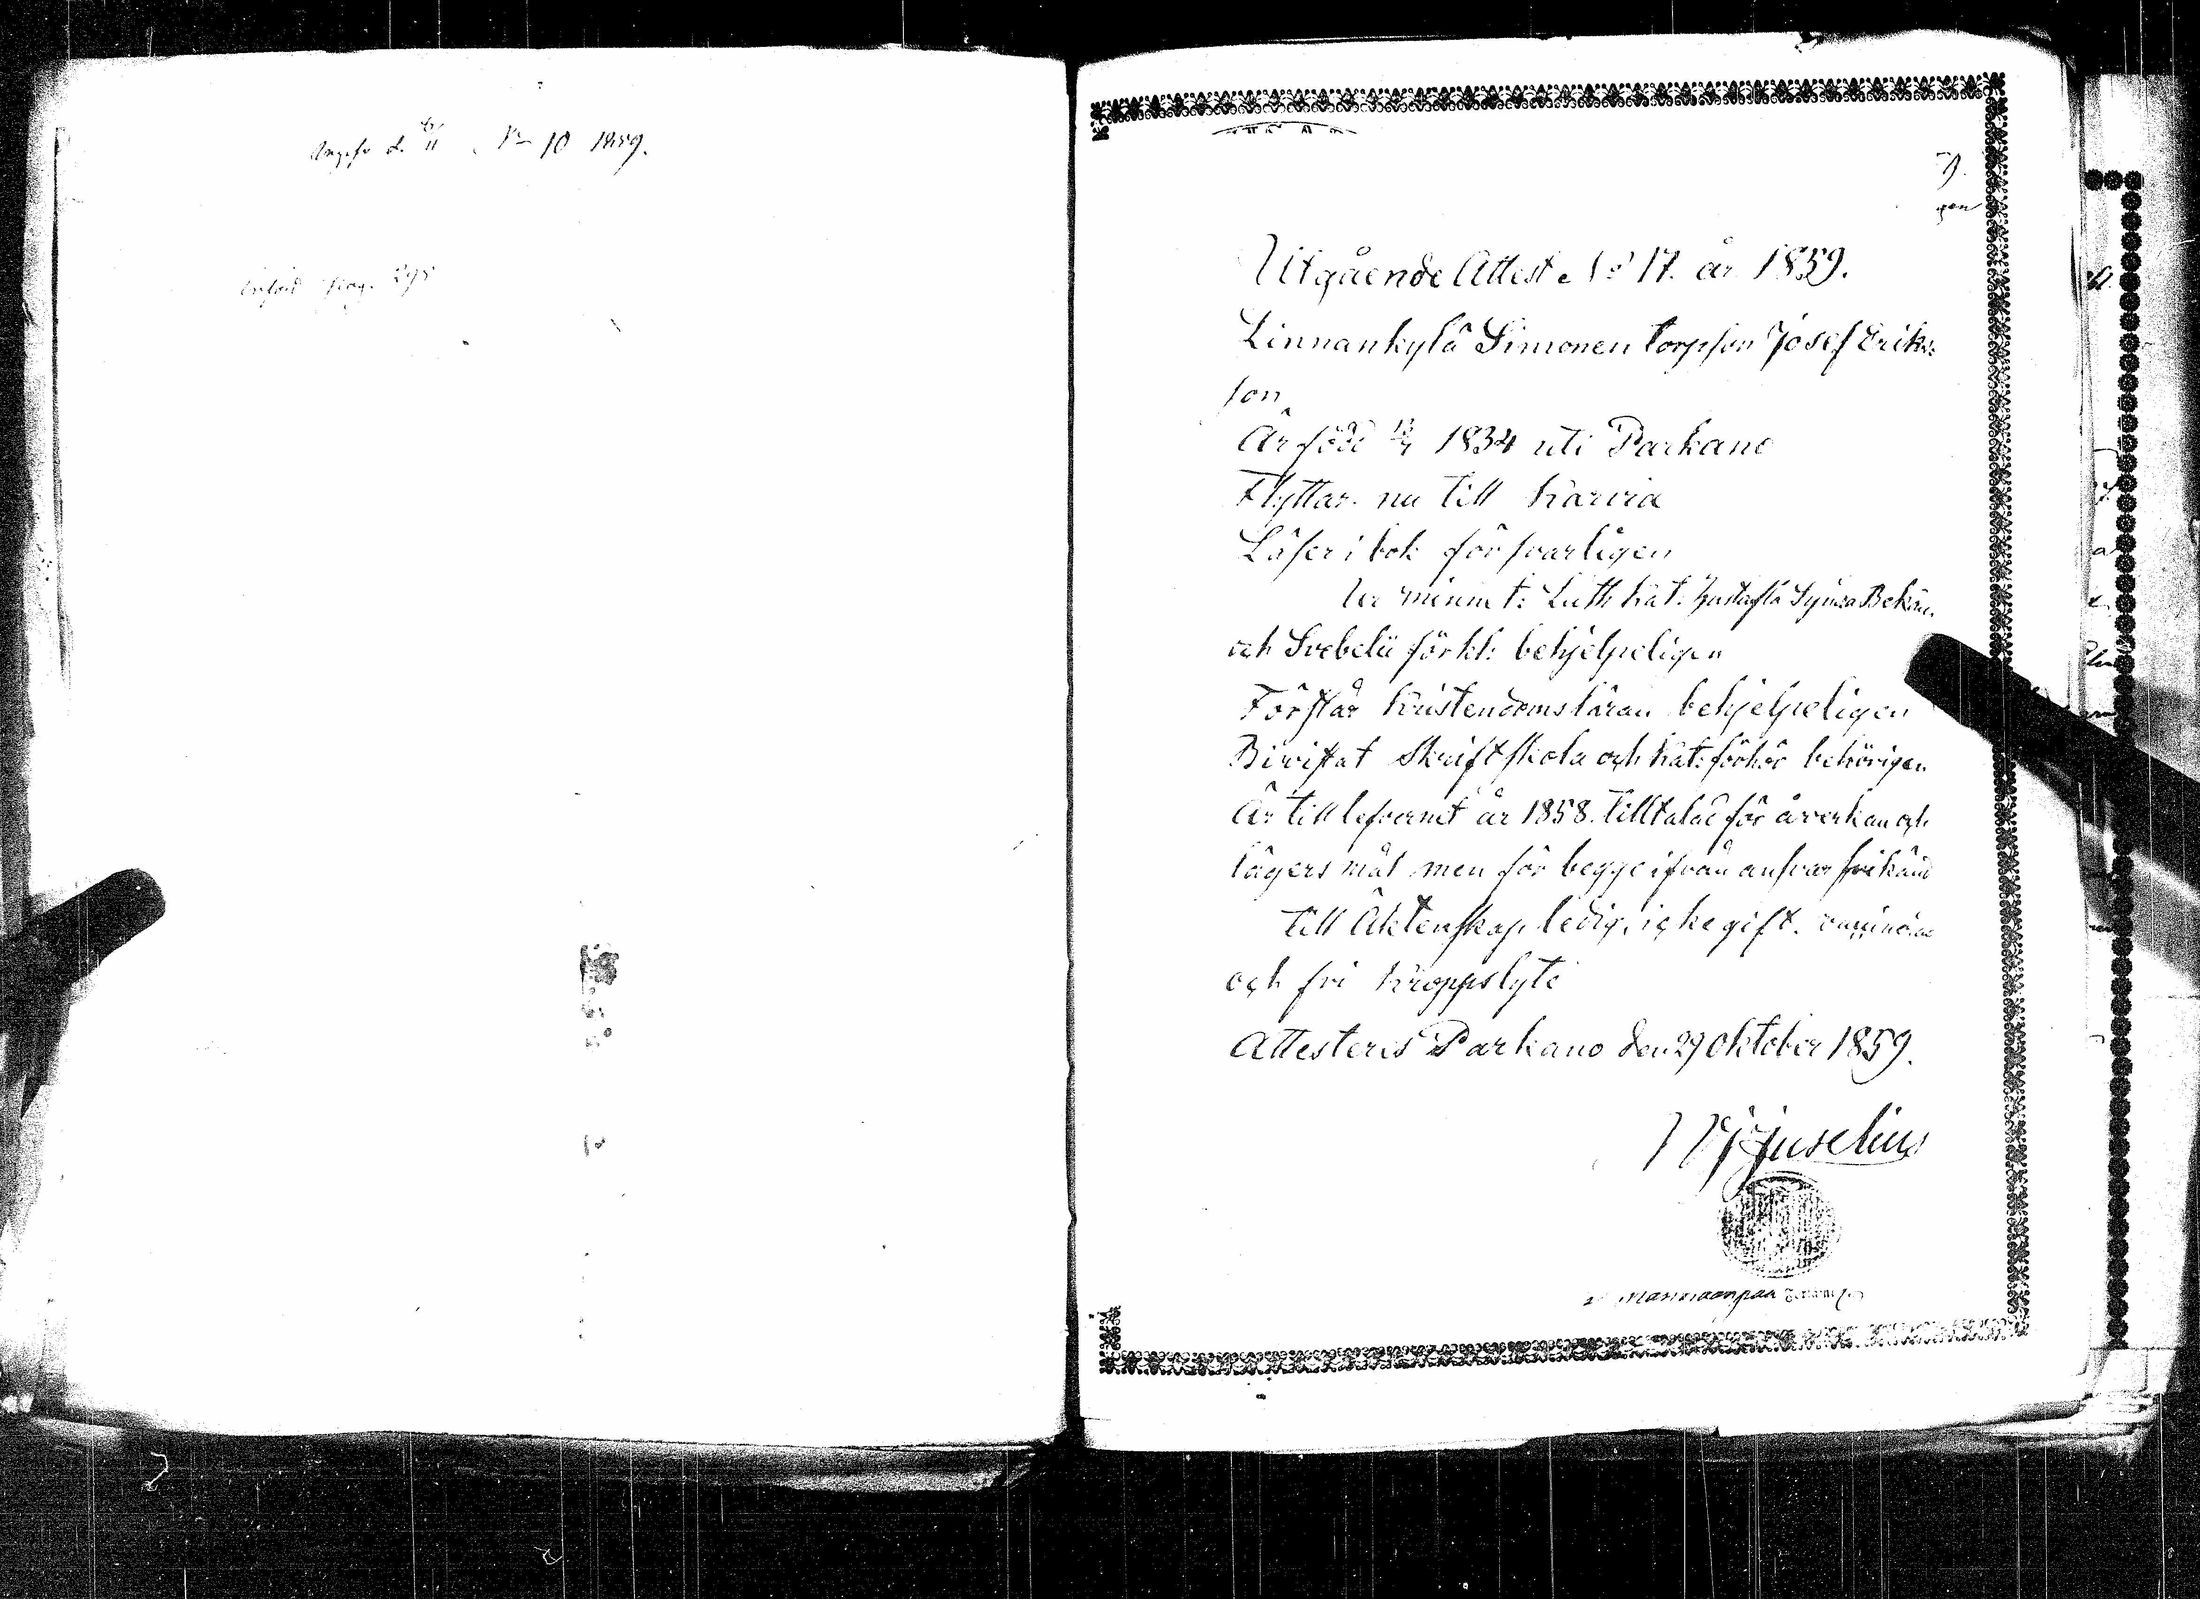 d. 6/11 No 10 1859.
pag. 295
Utgående Attest No 17. år 1859.
Linnankylä Simonen torpson Josef Eriks:
son
Är född 13/7 1834 uti Parkano
Flyttar nu till Karvia
Läser i bok försvarligen
ur minnet: Luth Kat.
och Svebelii förkl: behjelpeligen
Förstår Kristendomsläran behjelpeligen
Bivistat Skriftskola och Kat: förhör behörigen
Är till lefvernet år 1858. tilltalad för åverkan och
lägersmål men för begge ifrån ansvar frikänd
till Äktenskap ledig, icke gift.
och fri Kroppslyte
Attesteras Parkano den 29 Oktober 1859.
Juselius